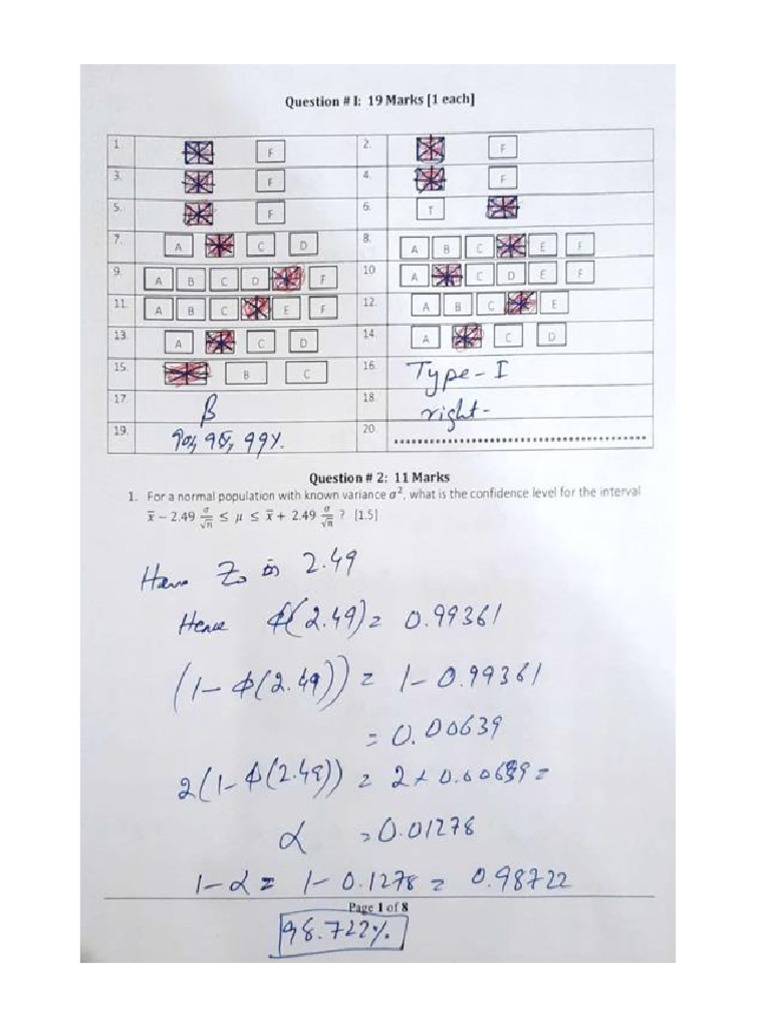 Question # I: 19 Marks [1 each]
1. F 2. F
3. F 4. F
5. F 6. T
7. A C D 8. A B C E F
9. A B C D F 10 A C D E F
11. A B C E F 12. A B C E
13. A C D 14. A C D
15. B C 16. Type - I
17. β 18. right -
19. 90%, 95%, 99%. 20. ................................
Question # 2: 11 Marks
1. For a normal population with known variance σ², what is the confidence level for the interval
x̄ − 2.49 σ/√n ≤ μ ≤ x̄ + 2.49 σ/√n ? [1.5]
Z₀ is 2.49
Hence ϕ(2.49) = 0.99361
(1 - ϕ(2.49)) = 1 - 0.99361
= 0.00639
2(1 - ϕ(2.49)) = 2 × 0.00639 =
α = 0.01278
1 - α = 1 - 0.1278 = 0.98722
Page 1 of 8
98.722%